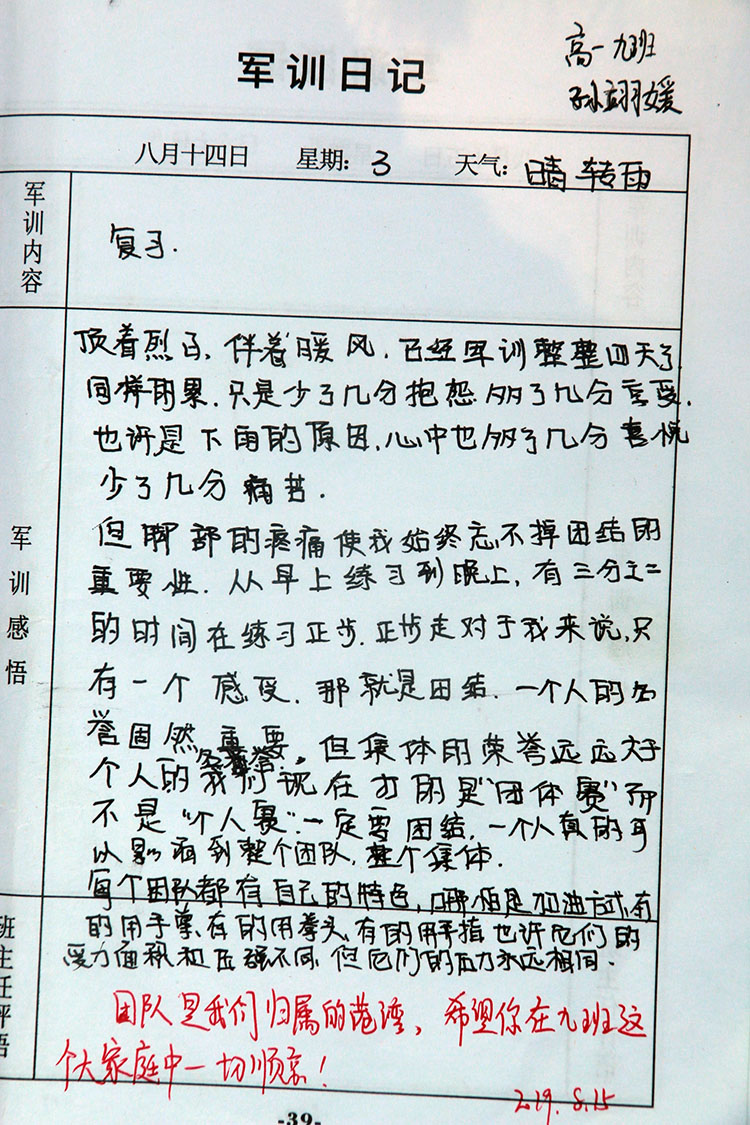 军训日记
高一九班
孙翊媛
八月十四日 星期: 3 天气: 晴转雨
军训内容
复习.
军训感悟
顶着烈日,伴着暖风,已经军训整整四天了
同样用累,只是少了几分抱怨多了几分享受,
也许是下雨的原因,心中也多了几分喜悦
少了几分痛苦.
但脚部的疼痛使我始终忘不掉团结的
重要性.从早上练习到晚上,有三分之二
的时间在练习正步.正步走对于我来说,只
有一个感受.那就是团结.一个人的名
誉固然重要,但集体的荣誉远远大于
个人的名誉.我们现在打的是“团体赛”而
不是“个人赛”.一定要团结.一个人真的可
以影响到整个团队,整个集体.
每个团队都有自己的特色,哪怕是加油方式,有
的用手掌,有的用拳头,有的用手指也许它们的
受力面积和压强不同,但它们的压力永远相同.
班主任评语
团队是我们归属的港湾、希望你在九班这
个大家庭中一切顺意!
2019.8.15
-39-